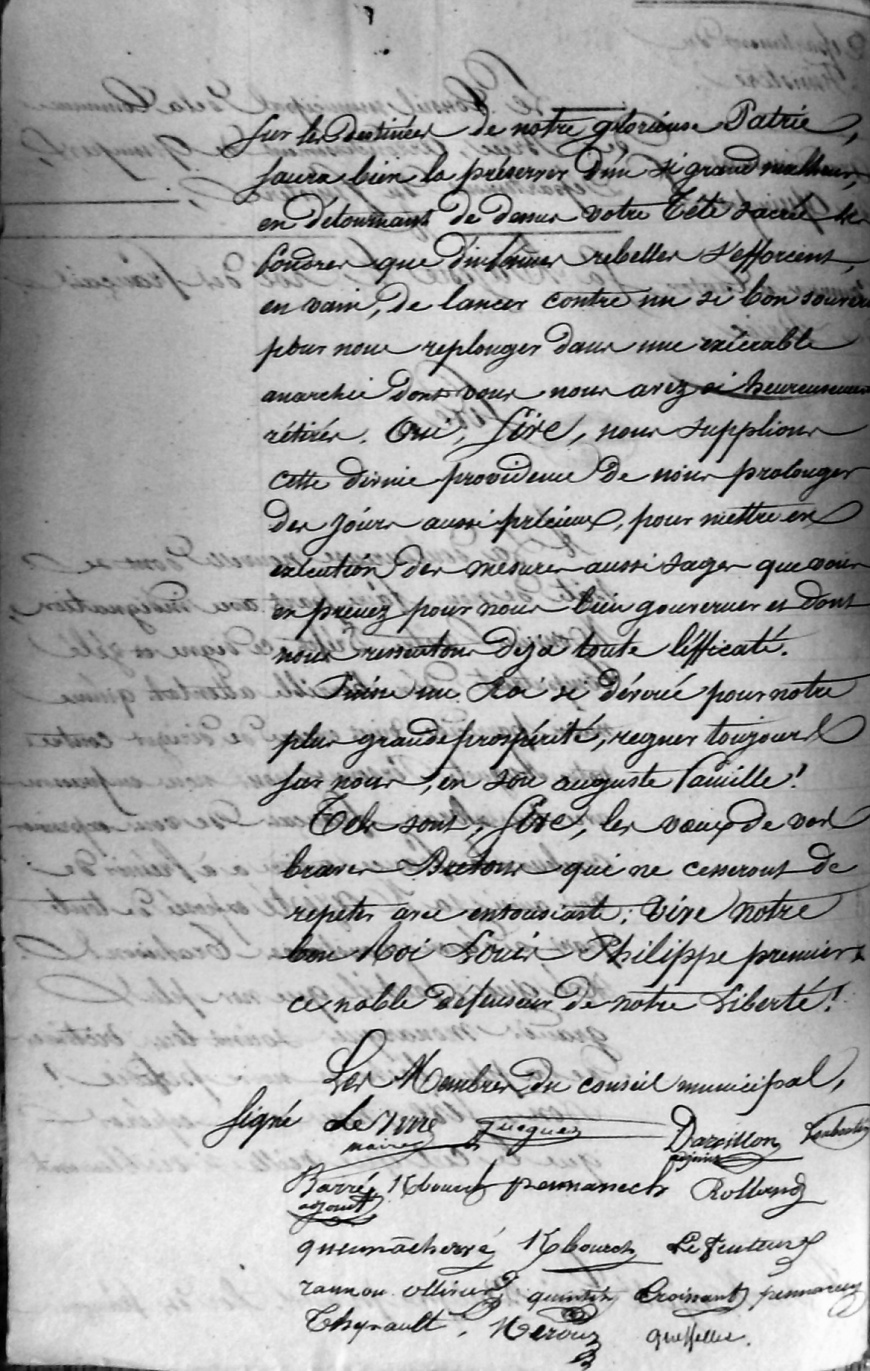 sur les destinées de notre glorieuse Patrie,
saura bien la préserver d'un si grand malheur,
en détournant de dessus votre Tête sacrée les
foudres que d'infâmes rebelles s'efforcent,
en vain, de lancer contre un si bon souverain
pour nous replonger dans une exécrable
anarchie dont vous nous avez si heureusement
rétirés. Oui, Sire, nous supplions
cette divine providence de nous prolonger
des jours aussi précieux, pour mettre en
exécution des mesures aussi sages que vous
en prenez pour nous bien gouverner et dont
nous ressentons déjà toute l'éfficaté.
Puisse un Roi si dévoué pour notre
plus grande prospérité, regner toujours
sur nous, en son auguste famille!
Tels sont, Sire, les vœux de vos
braves Bretons qui ne cesseront de
repeter avec entousiaste: Vive notre
bon Roi Louis Philippe premier
ce noble défenseur de notre Liberté!
Les Membres du conseil municipal,
Signé Le Yune Jacques Darsillon
maire adjoint
Barré Kbourch pennanech Rolland
adjoint
quemachervé Kbourch Le Feuteun
rannou ollivier quintin Croissant pennarun
Thynault